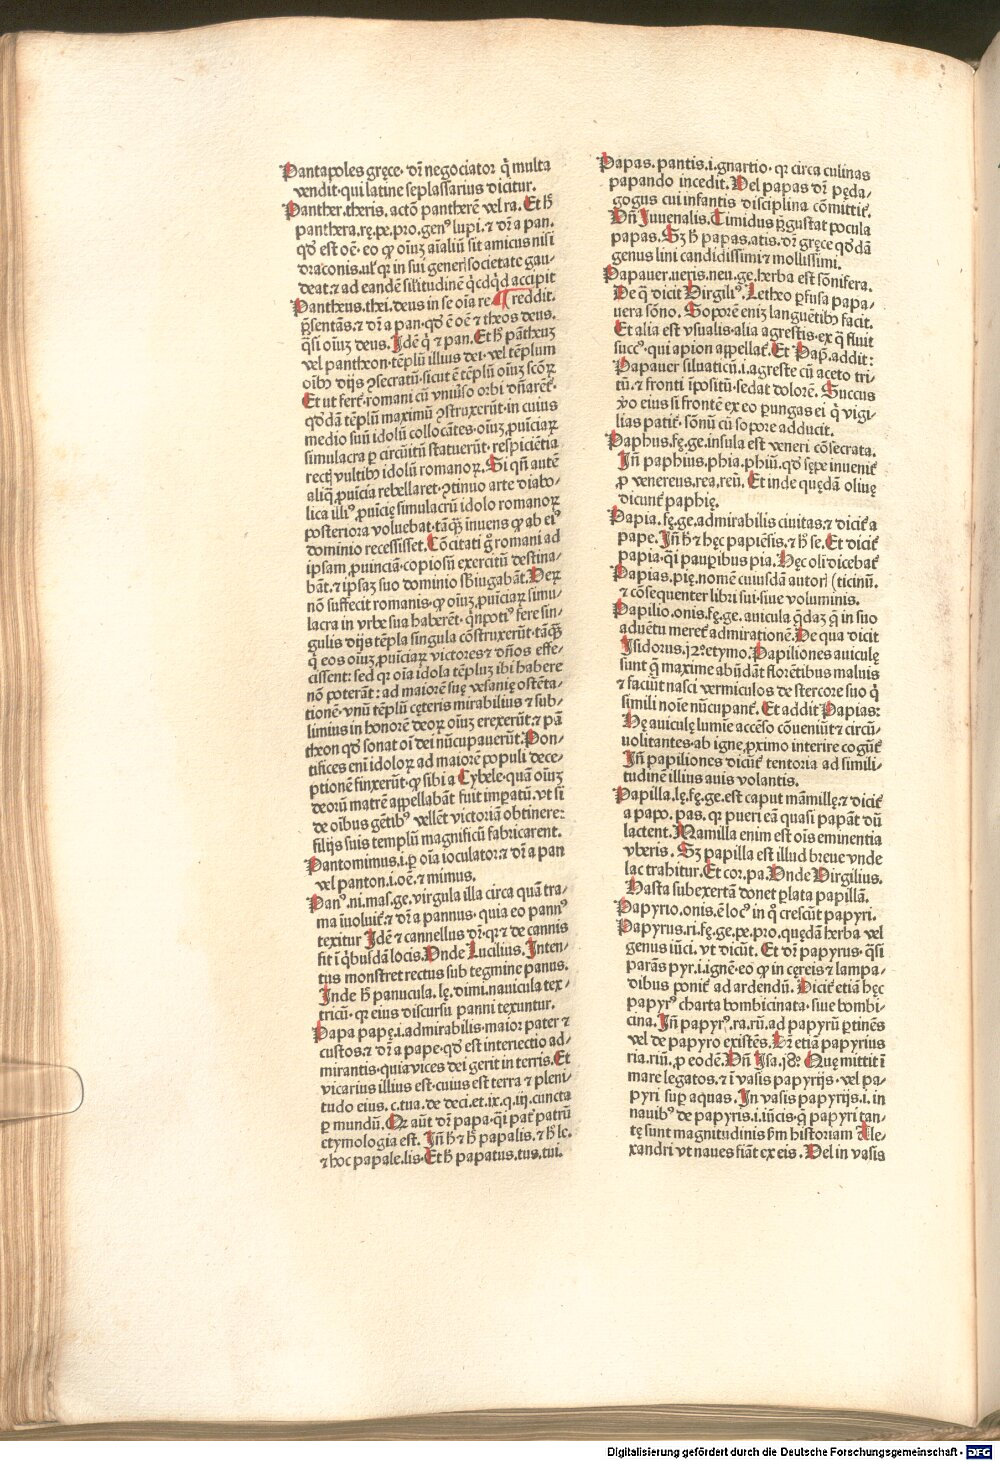 Pantapoles gręce· dr̄ negociator q̄ multa
vendit·qui latine seplassarius dicitur.
Panther.theris.actō pantherē vel ra.Et h̄
panthera.rę.pe.pro.genꝰ lupi.⁊ dr̄ a pan.
qd̛ est oē·eo ꝙ oiuꝫ aīaliū sit amicus nisi
draconis.ul̛ qꝛ in sui generꝭ societate gau⸗
deat·⁊ ad eandē sīlitudinē q̄cdq̄d accipit
Pantheus.thei.deus in se oīa re ¶ reddit.
p̄sentās.⁊ dr̄ a pan·qd̛ ē oē ⁊ theos deus.
q̄si oiuꝫ deus.Idē q̄ ⁊ pan.Et h̄ pātheuꝫ
vel pantheon·tēplū illius dei·vel tēplum
oībꝰ dijs ꝯsecratū·sicut ē tēplū oiuꝫ scōꝝ
Et ut fert̛·romani cū vniưso orbi dn̄arēt̛·
qd̛dā tēplū maximū ꝯstruxerūt·in cuius
medio suū idolū collocātes·oiuꝫ ꝓuīciaꝝ
simulacra ꝑ circūitū statuerūt·respiciētia
rectꝭ vultibꝰ idolū romanoꝝ.Si qn̄ autē
aliq̄ ꝓuīcia rebellaret·ꝯtinuo arte diabo⸗
lica illiꝰ ꝓuīcię simulacrū idolo romanoꝝ
posteriora voluebat·tāq̄ꝫ inuens ꝙ ab eiꝰ
dominio recessisset.Cōcitati g̊ romani ad
ipsam ꝓuinciā·copiosū exercitū destina⸗
bāt.⁊ ipsaꝫ suo dominio sb̛iugabāt.Veꝝ
nō suffecit romanis·ꝙ oiuꝫ ꝓuīciaꝝ simu⸗
lacra in vrbe sua haberēt·q̄npotiꝰ fere sin⸗
gulis dijs tēpla singula cōstruxerūt·tāq̄ꝫ
q̄ eos oiuꝫ ꝓuīciaꝝ victores ⁊ dn̄os effe⸗
cissent: sed qꝛ oīa idola tēpluꝫ ibi habere
nō poterāt: ad maiorē suę vesanię ostēta⸗
tionē·vnū tēplū cęteris mirabilius ⁊ sub⸗
limius in honorē deoꝝ oiuꝫ erexerūt·⁊ pā
theon qd̛ sonat oī dei nūcupauerūt.Pon⸗
tifices enī idoloꝝ ad maiorē populi dece⸗
ptionē finxerūt·ꝙ sibi a Cybele·quā oiuꝫ
deorū matrē appellabāt fuit imꝑatū.vt si
de oībus gētibꝰ vellēt victoriā obtinere:
filijs suis templū magnificū fabricarent.
Pantomimus.i.ꝑ oīa ioculator·⁊ dr̄ a pan
vel panton.i.oē.⁊ mimus.
Panꝰ.ni.mas.ge.virgula illa circa quā tra⸗
ma īuoluit̛.⁊ dr̄ a pannus·quia eo pannꝰ
texitur Idē ⁊ cannellus dr̄·qꝛ ⁊ de cannis
fit ī q̄busdā locis.Vnde Lucilius.Inten⸗
tus monstret rectus sub tegmine panus.
Inde h̄ panucula.lę.dimi.nauicula tex⸗
tricū·qꝛ eius discursu panni texuntur.
Papa papę.i.admirabilis·maior pater ⁊
custos.⁊ dr̄ a pape·qd̛ est interiectio ad⸗
mirantis·quia vices dei gerit in terris.Et
vicarius illius est·cuius est terra ⁊ pleni⸗
tudo eius.c.tua.de deci.et.ix.q.iij.cuncta
ꝑ mundū.Qꝛ aūt dr̄ papa·q̄i pat̛ patrū
etymologia est.Iñ h̄ ⁊ h̄ papalis.⁊ h̄ lc.
⁊ hoc papale.lis·Et h̄ papatus.tus.tui.
Papas.pantis.i.gnartio·qꝛ circa culinas
papando incedit.Vel papas dr̄ pęda⸗
gogus cui infantis disciplina cōmittit̛.
Vn̄ Iuuenalis.Timidus p̄gustat pocula
papas.Sꝫ h̄ papas.atis.dr̄ gręce qd̛dā
genus lini candidissimi ⁊ mollissimi.
Papauer.ueris.neu.ge.herba est sōnifera.
De q̄ dicit Virgiliꝰ.Letheo ꝑfusa papa⸗
uera sōno. Soporē eniꝫ languētibꝰ facit.
Et alia est vsualis·alia agrestis·ex q̄ fluit
succꝰ·qui apion appellat̛.Et Pap̄.addit:
Papauer siluaticū.i.agreste cū aceto tri⸗
tū·⁊ fronti īpositū·sedat dolorē.Succus
v̊o eius si frontē ex eo ꝑungas ei q̄ vigi⸗
lias patit̛·sōnū cū sopore adducit.
Paphus.fę.ge.insula est veneri cōsecrata.
Iñ paphius.phia.phiū.qd̛ sępe inuenit̛
ꝓ venereus.rea.reū.Et inde quędā oliuę
dicunt̛ paphię.
Papia.fę.ge.admirabilis ciuitas.⁊ dicit̛ a
pape.Iñ h̄ ⁊ hęc papiēsis.⁊ h̄ se.Et dicit̛
papia·q̄i pauꝑibus pia.Hęc oli dicebat̛
Papias.pię.nomē cuiusdā autorꝭ (ticinū.
⁊ cōsequenter libri sui·siue voluminis.
Papilio.onis.fę.ge.auicula q̄daꝫ q̄ in suo
aduētu meret̛ admirationē.De qua dicit
Isidorus.12.etymo.Papiliones auiculę
sunt q̄ maxime abūdāt florētibus maluis
⁊ faciūt nasci vermiculos de stercore suo q̄
simili noīe nūcupant̛.Et addit Papias:
Hę auiculę lumīe accēso cōueniūt ⁊ circū⸗
uolitantes·ab igne ꝓximo interire cogūt̛
Iñ papiliones dicūt̛ tentoria ad simili⸗
tudinē illius auis volantis.
Papilla.lę.fę.ge.est caput māmillę.⁊ dicit̛
a papo.pas.qꝛ pueri eā quasi papāt dū
lactent.Mamilla enim est oīs eminentia
vberis. Sꝫ papilla est illud breue vnde
lac trahitur.Et cor.pa.Vnde Virgilius.
Hasta sub exertā donet ꝑlata papillā.
Papyrio.onis.ē locꝰ in q̄ crescūt papyri.
Papyrus.ri.fę.ge.pe.pro.quędā herba vel
genus iūci. vt dicūt. Et dr̄ papyrus·q̄si
parās pyr.i.ignē·eo ꝙ in cęreis ⁊ lampa⸗
dibus ponit̛ ad ardendū.Dicit̛ etiā hęc
papyrꝰ charta bombicinata·siue bombi⸗
cina.Iñ papyrꝰ.ra.rū.ad papyrū ꝑtinēs
vel de papyro existēs.Dr̄ etiā papyrius
ria.riū.ꝓ eodē.Vn̄ Isa.18: Quę mittit ī
mare legatos·⁊ ī vasis papyrijs·vel pa⸗
pyri suꝑ aquas.In vasis papyrijs.i.in
nauibꝰ de papyris.i.iūcis·q̄ papyri tan⸗
tę sunt magnitudinis sm̄ historiam Ale⸗
xandri vt naues fiāt ex eis.Vel in vasis
Digitalisierung gefördert durch die Deutsche Forschungsgemeinschaft · DFG